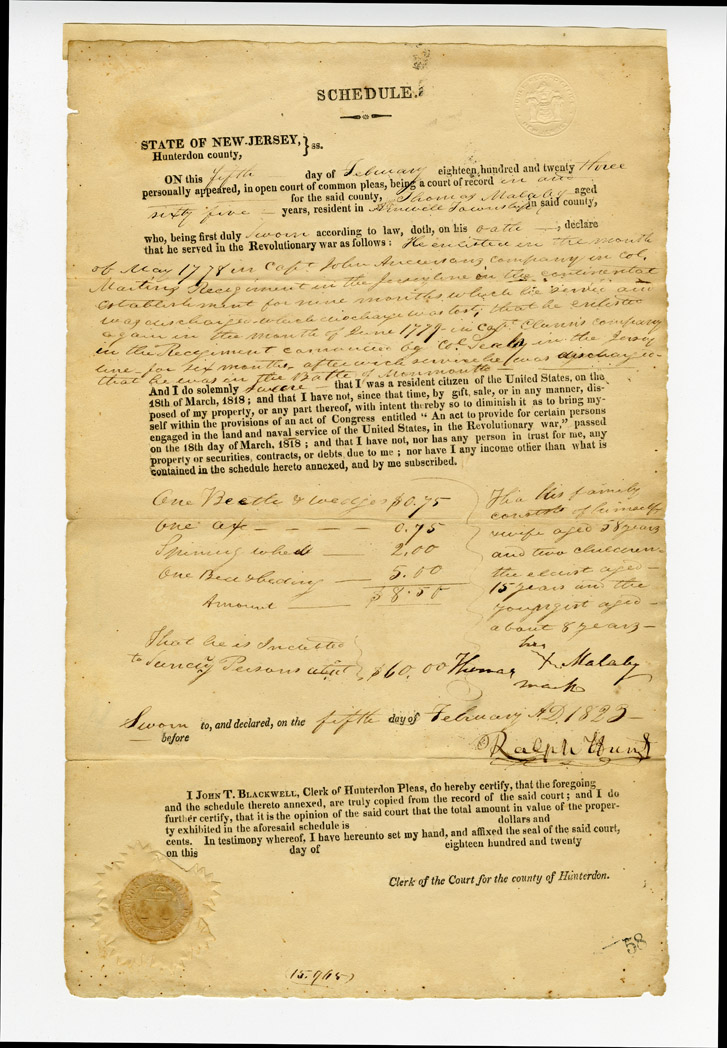 SCHEDULE.
STATE OF NEW-JERSEY, } ss.
Hunterdon county,
ON this fifth day of February eighteen hundred and twenty three
personally appeared, in open court of common pleas, being a court of record in and
for the said county, Thomas Malaby aged
sixty five years, resident in Amwell Township in said county,
who, being first duly sworn according to law, doth, on his oath declare
that he served in the Revolutionary war as follows: He enlisted in the month
of May 1778 in Capt John Andersons company in Col.
Martins Reegiment in the Jerseyline on the continental
establishment for nine months which he served and
was discharged which discharge was lost, that he enlisted
again in the month of June 1779 in Capt company
in the Reegiment comanded by Col. in the Jersey
line for six months after wich service he was discharged
that he was in the Battle of Monmouth
And I do solemnly swere that I was a resident citizen of the United States, on the
18th of March, 1818; and that I have not, since that time, by gift, sale, or in any manner, dis-
posed of my property, or any part thereof, with intent thereby so to diminish it as to bring my-
self within the provisions of an act of Congress entitled "An act to provide for certain persons
engaged in the land and naval service of the United States, in the Revolutionary war," passed
on the 18th day of March, 1818; and that I have not, nor has any person in trust for me, any
property or securities, contracts, or debts due to me; nor have I any income other than what is
contained in the schedule hereto annexed, and by me subscribed.
One Beetle & wedges $0.75
one ax 0.75
Spining wheel 2.00
One Bed & beding 5.00
Amount $8.50
Tha his family
consists of himself
wife aged 58 years
and two children
the eldest aged
15 years and the
youngest aged
about 8 years
That he is Indebted
to Sundry Persons about $60.00
his
Thomas X Malaby
mark
Sworn to, and declared, on the fifth day of February A.D. 1823
before
Ralph Hunt
I JOHN T. BLACKWELL, Clerk of Hunterdon Pleas, do hereby certify, that the foregoing
and the schedule thereto annexed, are truly copied from the record of the said court; and I do
further certify, that it is the opinion of the said court that the total amount in value of the proper-
ty exhibited in the aforesaid schedule is dollars and
cents. In testimony whereof, I have hereunto set my hand, and affixed the seal of the said court,
on this day of eighteen hundred and twenty
Clerk of the Court for the county of Hunterdon.
58
(15.968)